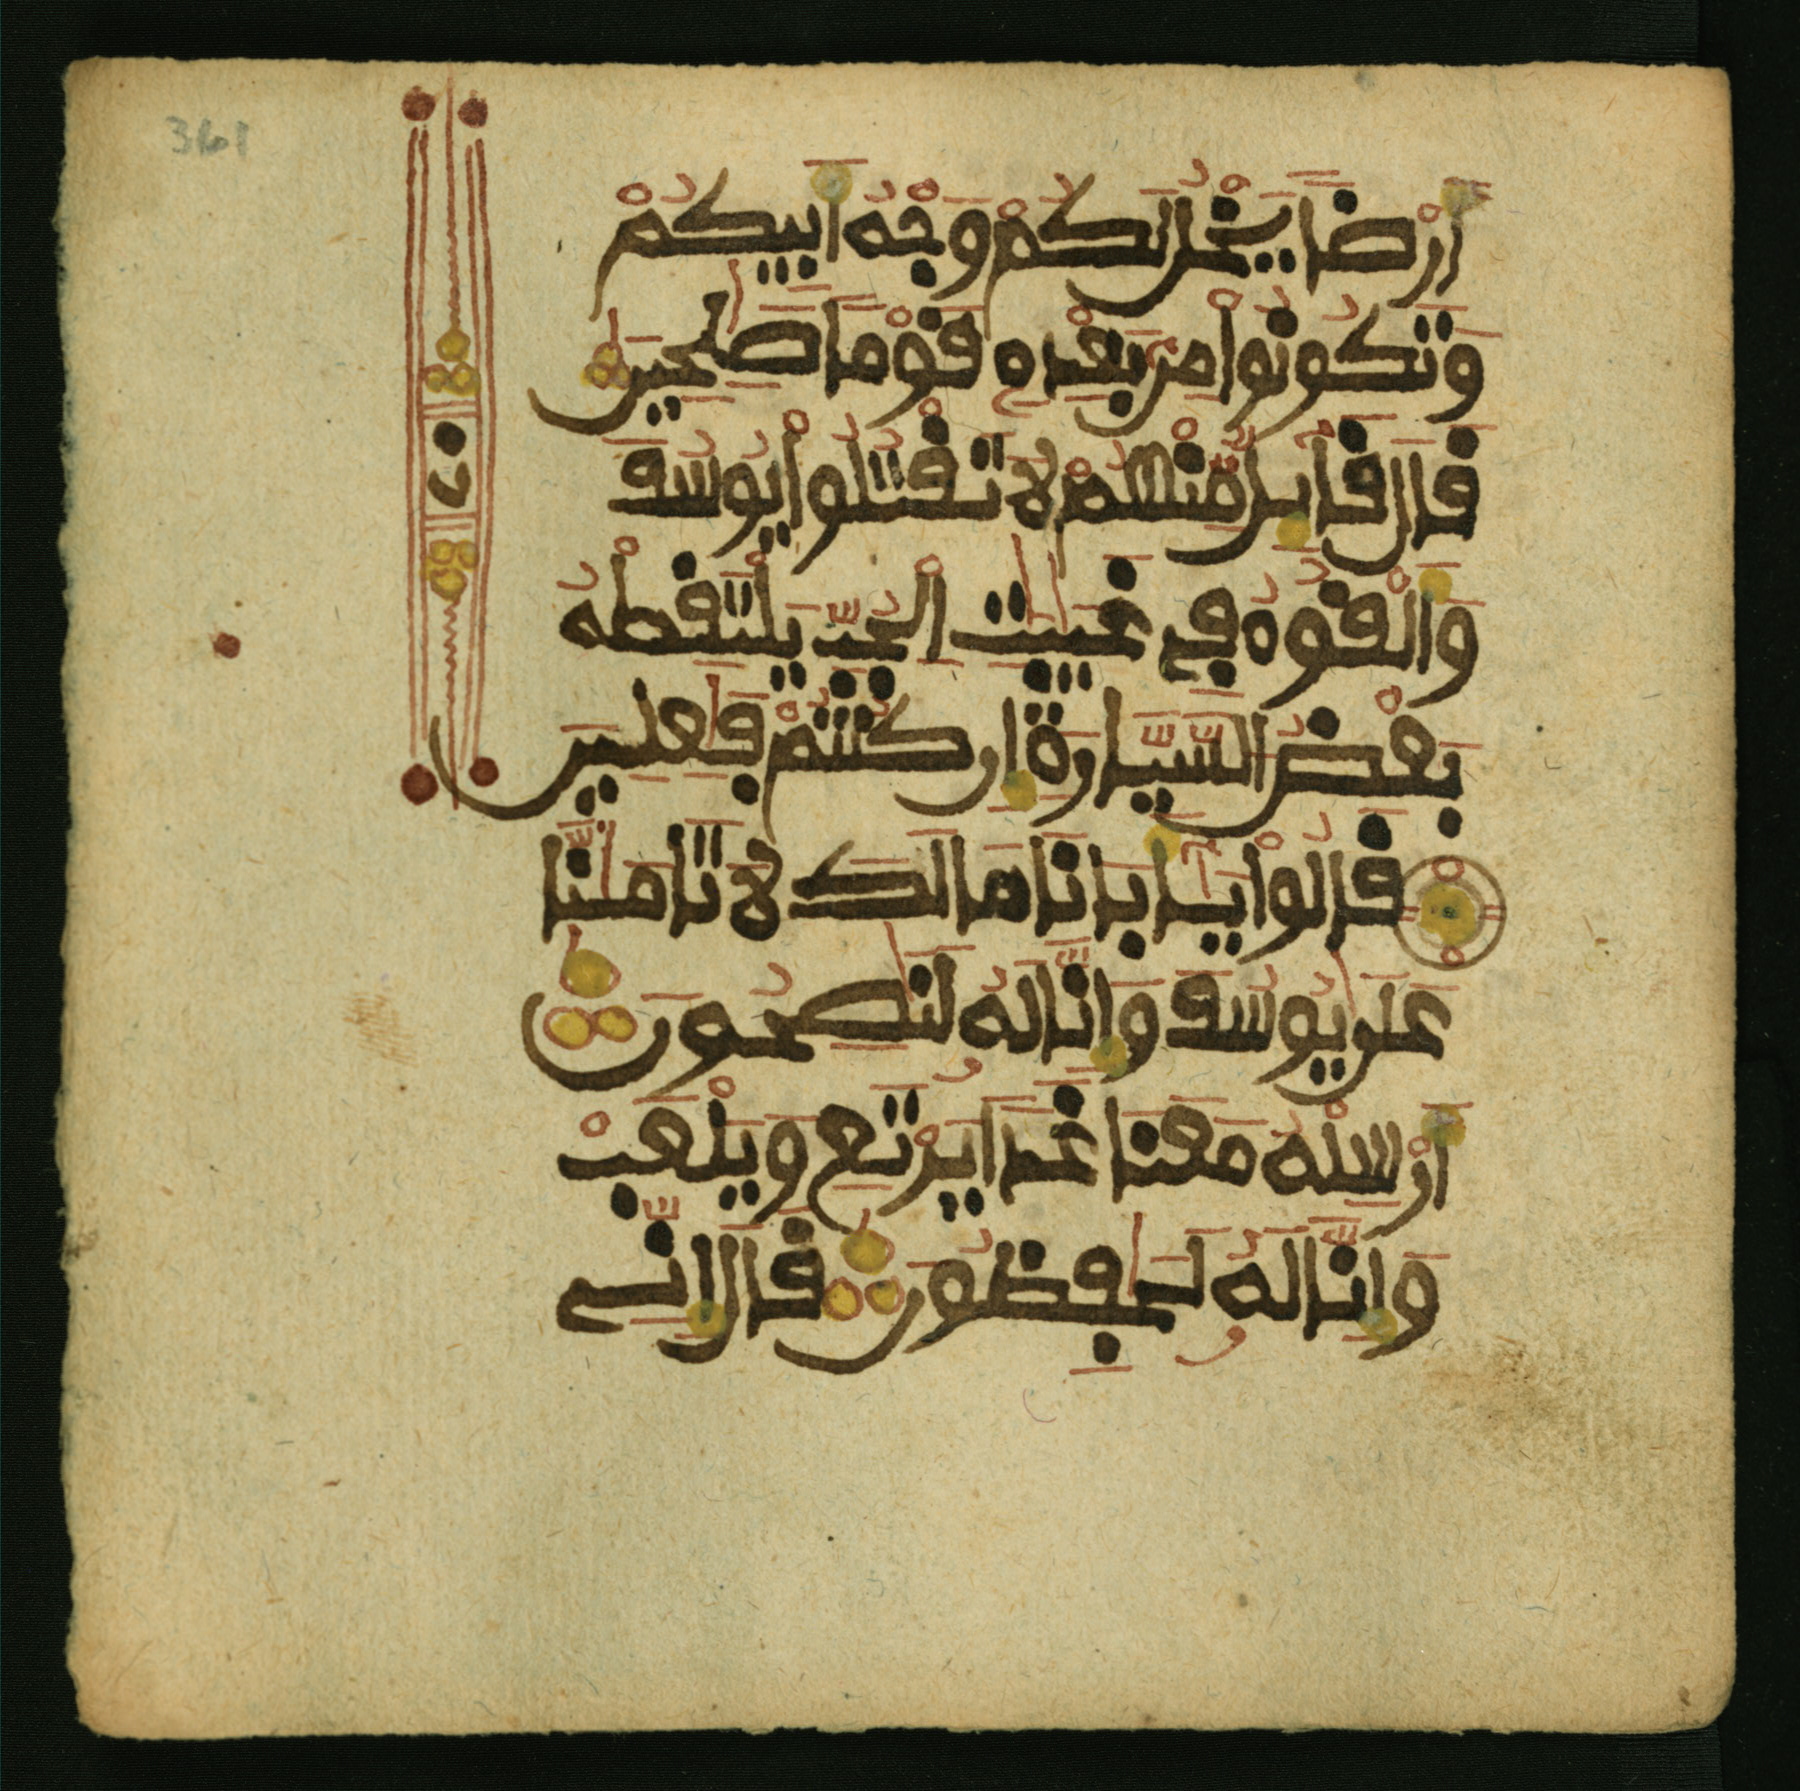 361
أَرْضًا يَخْلُ لَكُمْ وَجْهُ أَبِيكُمْ
وَتَكُونُوا مِنْ بَعْدِهِ قَوْمًا صَٰلِحِينَ
قَالَ قَآئِلٌ مِّنْهُمْ لَا تَقْتُلُوا يُوسُفَ
وَأَلْقُوهُ فِي غَيَٰبَٰتِ الْجُبِّ يَلْتَقِطْهُ
بَعْضُ السَّيَّارَةِ إِن كُنتُمْ فَٰعِلِينَ
قَالُوا يَٰٓأَبَانَا مَالَكَ لَا تَأْمَ۬نَّا
عَلَىٰ يُوسُفَ وَإِنَّا لَهُ لَنَٰصِحُونَ
أَرْسِلْهُ مَعَنَا غَدًا يَرْتَعِ وَيَلْعَبْ
وَإِنَّا لَهُ لَحَٰفِظُونَ قَالَ إِنِّي